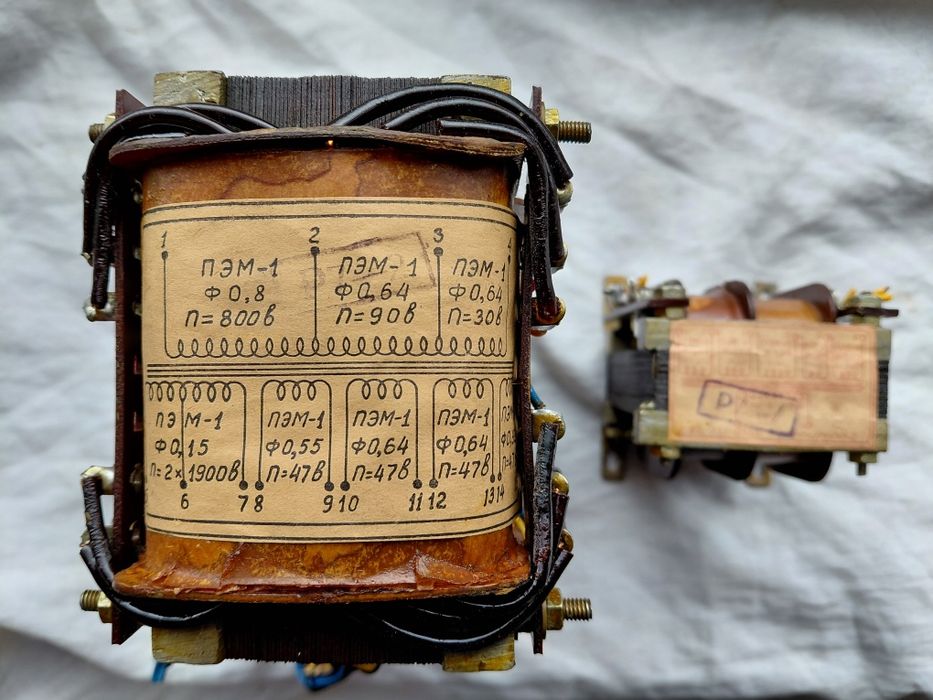 1 2 3 4
ПЭМ-1 ПЭМ-1 ПЭМ-1
Ф0,8 Ф0,64 Ф0,64
П=800в П=90в П=30в
ПЭМ-1 ПЭМ-1 ПЭМ-1 ПЭМ-1
Ф0,15 Ф0,55 Ф0,64 Ф0,64
П=2×1900в П=47в П=47в П=47в
6 7 8 9 10 11 12 13 14
Р